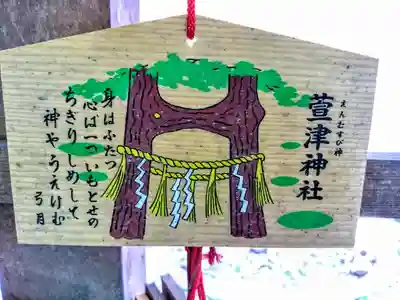 えんむすび神
萱津神社
身はふたつ
心は一ついもとせの
ちぎりしめして
神やうえけむ
弓月